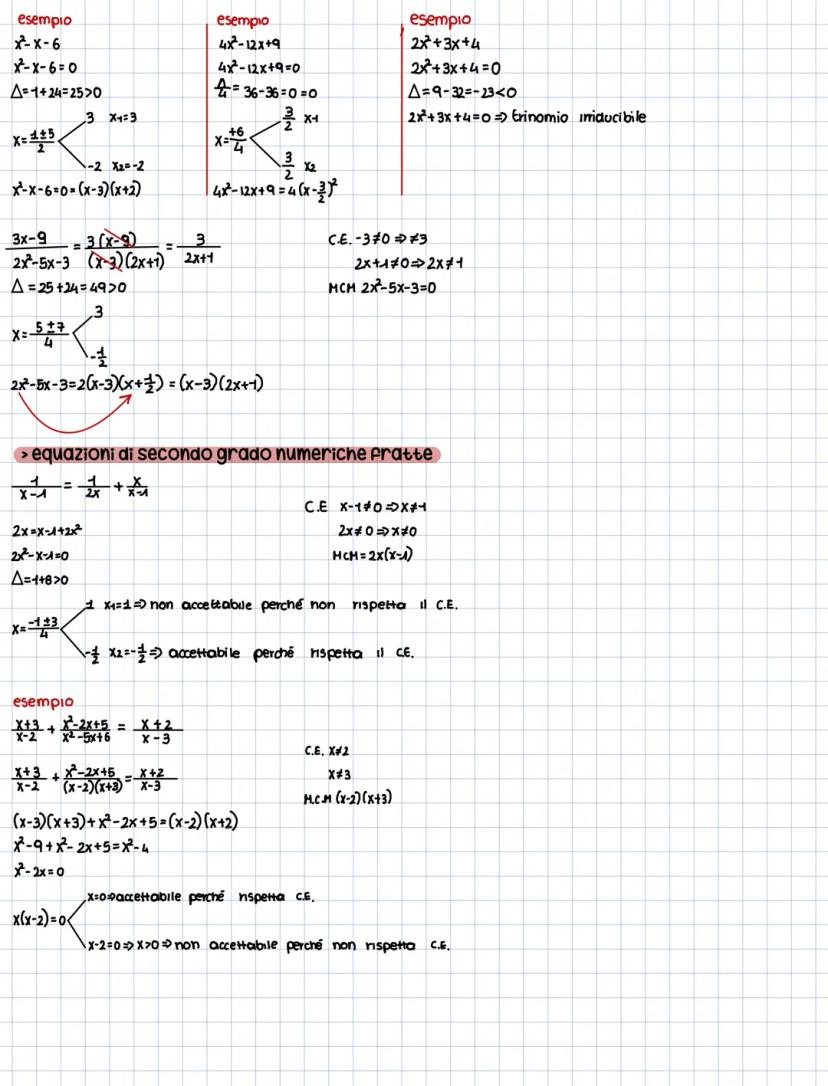 esempio
x²-x-6
x²-x-6=0
Δ=1+24=25>0
x=1±5/2
3 x1=3
-2 x2=-2
x²-x-6=0=(x-3)(x+2)
esempio
4x²-12x+9
4x²-12x+9=0
Δ/4=36-36=0=0
x=+6/4
3/2 x1
3/2 x2
4x²-12x+9=4(x-3/2)²
esempio
2x²+3x+4
2x²+3x+4=0
Δ=9-32=-23<0
2x²+3x+4=0⇒ trinomio irriducibile
3x-9/2x²-5x-3 = 3(x-9)/(x-3)(2x+1) = 3/2x+1
Δ=25+24=49>0
x=5±7/4
3
-1/2
2x²-5x-3=2(x-3)(x+1/2)=(x-3)(2x+1)
C.E. -3≠0⇒≠3
2x+1≠0⇒2x≠1
MCM 2x²-5x-3=0
> equazioni di secondo grado numeriche fratte
1/x-1 = 1/2x + x/x-1
2x=x-1+2x²
2x²-x-1=0
Δ=1+8>0
C.E x-1≠0⇒x≠1
2x≠0⇒x≠0
MCM=2x(x-1)
x=-1±3/4
1 x1=1⇒ non accettabile perché non rispetta il C.E.
-1/2 x2=-1/2⇒ accettabile perché rispetta il C.E.
esempio
x+3/x-2 + x²-2x+5/x²-5x+6 = x+2/x-3
x+3/x-2 + x²-2x+5/(x-2)(x+3) = x+2/x-3
C.E. x≠2
x≠3
M.C.M (x-2)(x+3)
(x-3)(x+3)+x²-2x+5=(x-2)(x+2)
x²-9+x²-2x+5=x²-4
x²-2x=0
x(x-2)=0
x=0⇒accettabile perché rispetta C.E.
x-2=0⇒x>0⇒non accettabile perché non rispetta C.E.